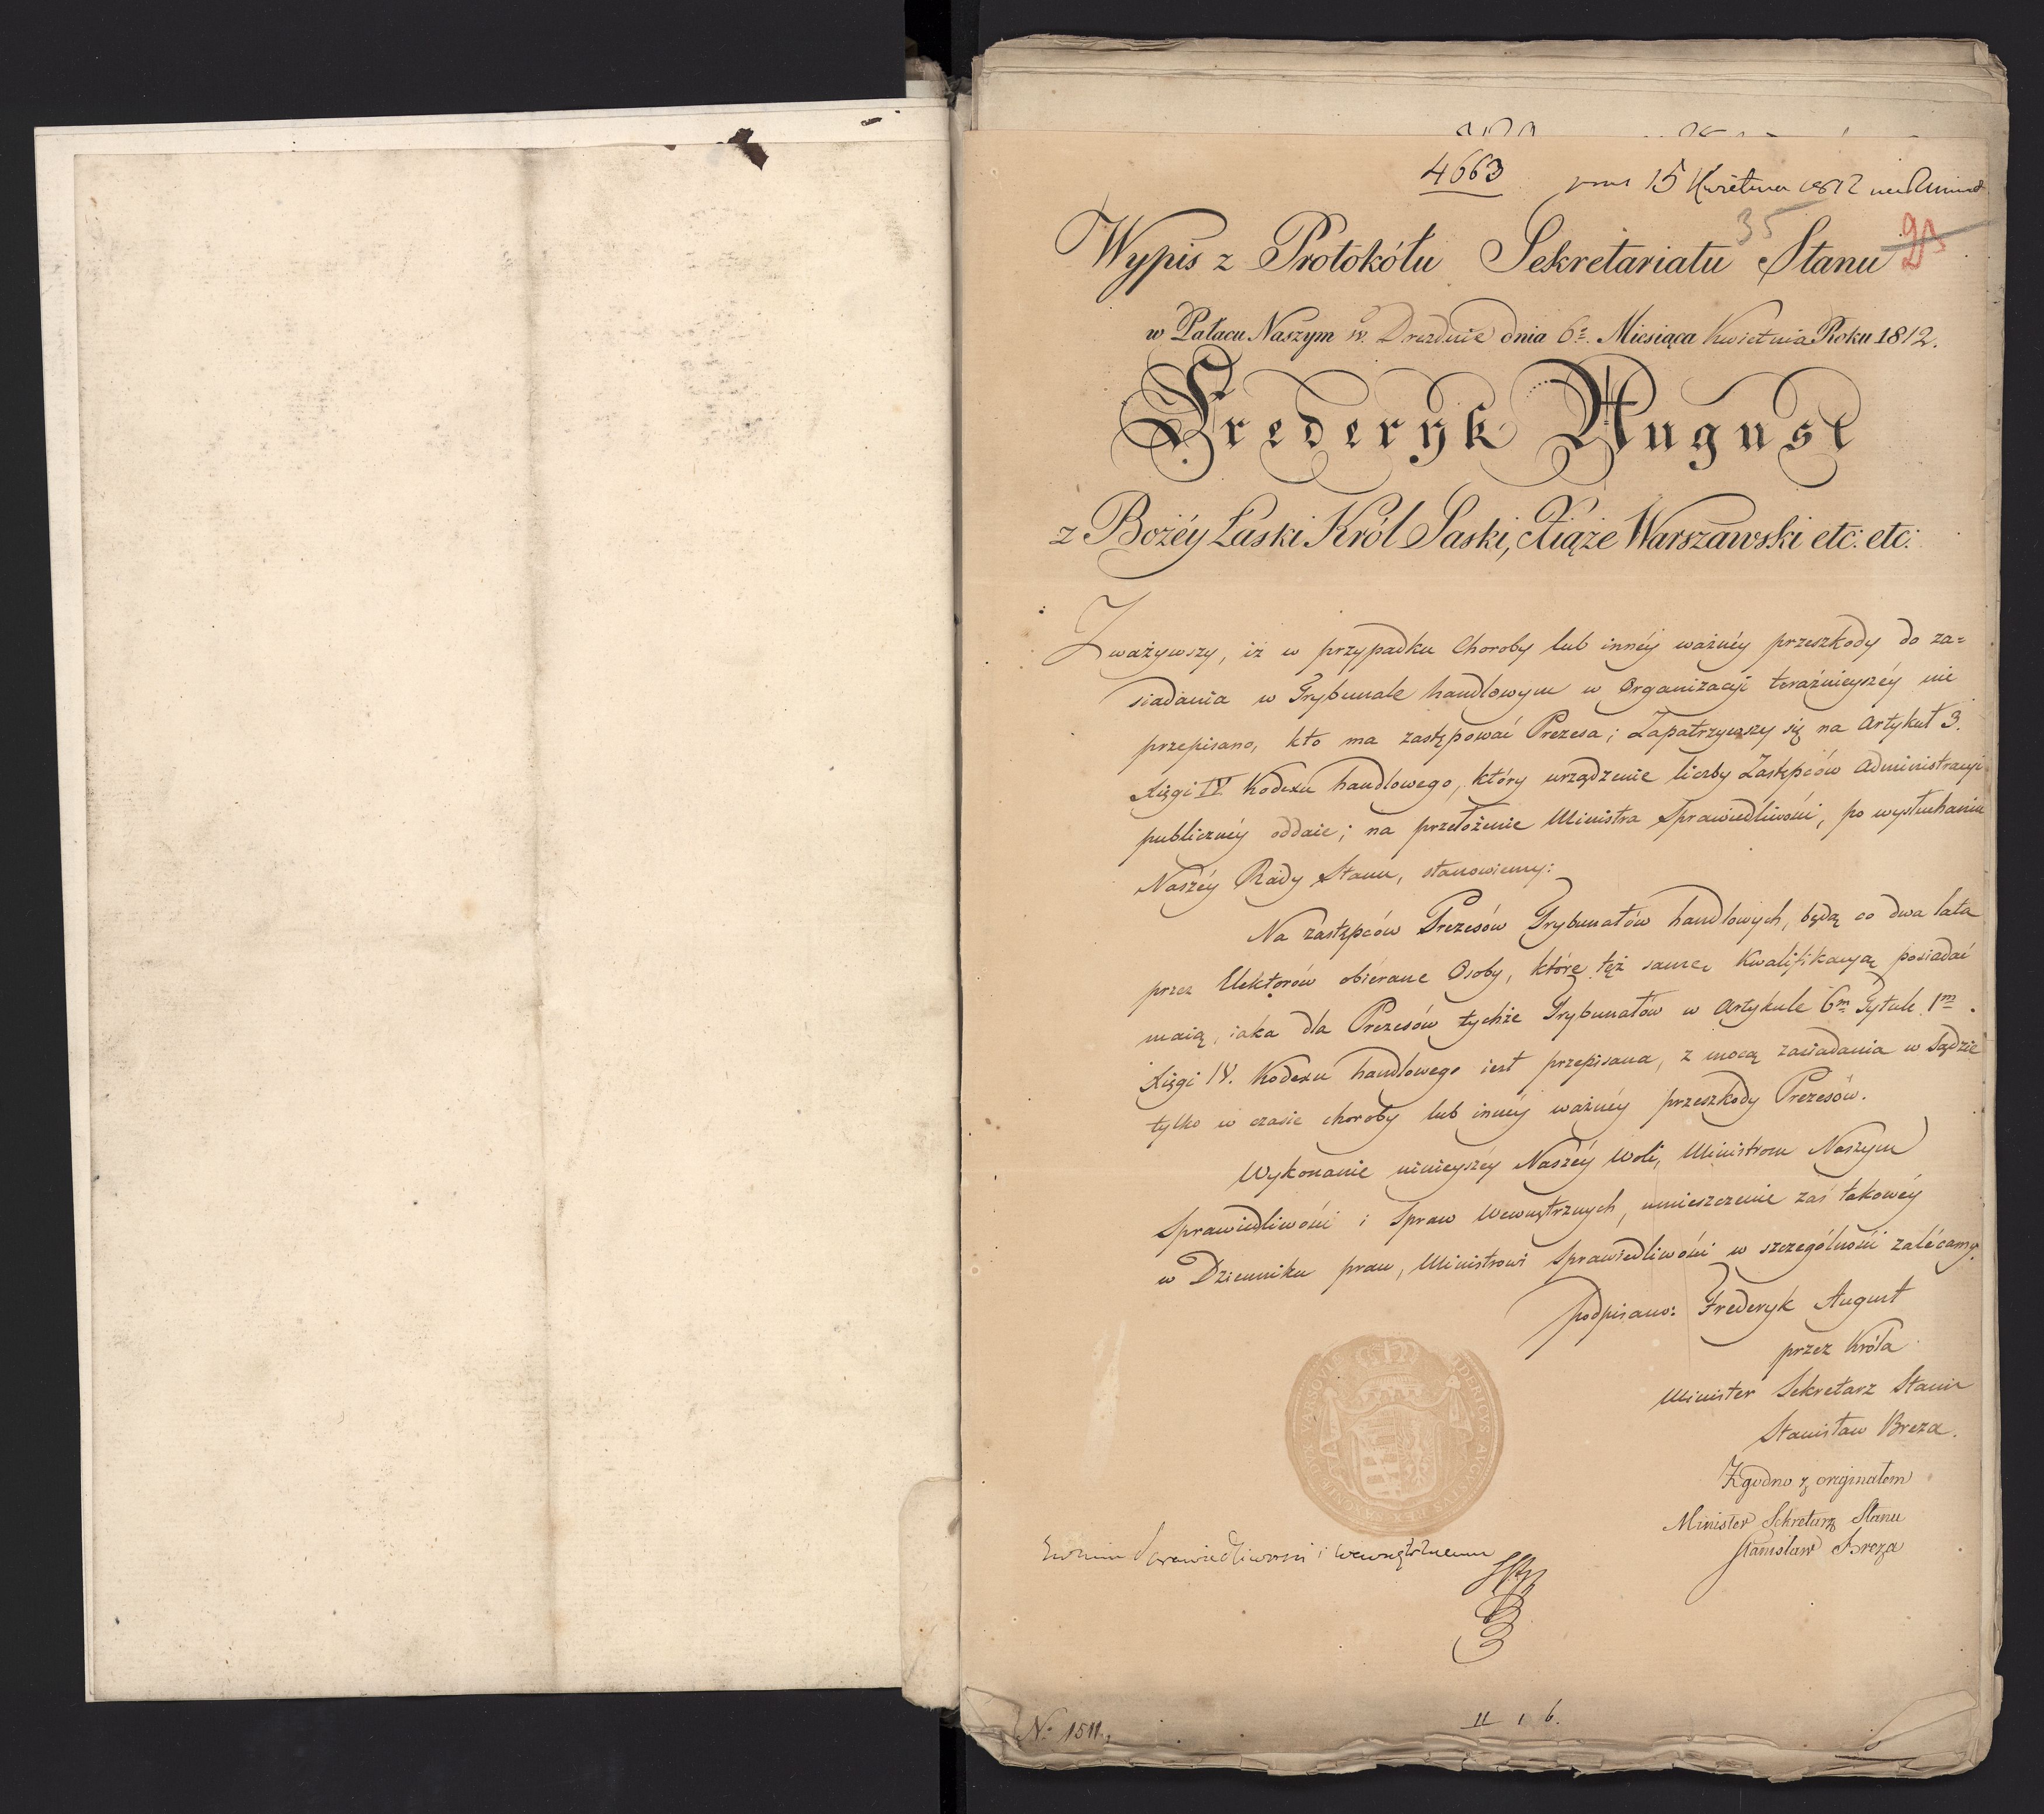 4663
15 Kwietnia 1812
35
Wypis z Protokółu Sekretariatu Stanu
w Pałacu Naszym w Dreznie dnia 6º. Miesiąca Kwietnia Roku 1812.
Frederyk August
z Bożéy Łaski Król Saski, Xiąże Warszawski etc: etc:
Zważywszy, iż w przypadku Choroby lub innéy ważnéy przeszkody do za=
siadania w Trybunale handlowym w Organizacyi teraźnieyszéy nie
przepisano, kto ma zastępować Prezesa; Zapatrzywszy się na Artykuł 3.
Xięgi IV. Kodexu handlowego, który urządzenie liczby Zastępców Administracyi
publicznéy oddaie; na przełożenie Ministra Sprawiedliwości, po wysłuchaniu
Naszéy Rady Stanu, stanowiemy:
Na zastępców Prezesów Trybunałów handlowych, będą co dwa lata
przez Elektorów obiérane Osoby, które też samę Kwalifikacyą posiadać
maią, iaka dla Prezesów tychże Trybunałów w Artykule 6m Tytule 1m.
Xięgi IV. Kodexu handlowego iest przepisana, z mocą zasiadania w Sądzie
tylko w czasie choroby lub innéy ważnéy przeszkody Prezesów.
Wykonanie ninieyszéy Naszéy Woli, Ministrom Naszym
Sprawiedliwości i Spraw Wewnętrznych, umieszczenie zaś takowéy
w Dzienniku praw, Ministrowi Sprawiedliwości w szczególności zalécamy.
podpisano: Frederyk August
przez Króla
Minister Sekretarz Stanu
Stanisław Breza.
Zgodno z oryginałem
Minister Sekretarz Stanu
Stanisław Breza
FRIDERICVS AVGVSTVS REX SAXONIAE DVX VARSOVIAE
Sprawiedliwości i Wewnętrznemu
II 1 6.
N: 1511.